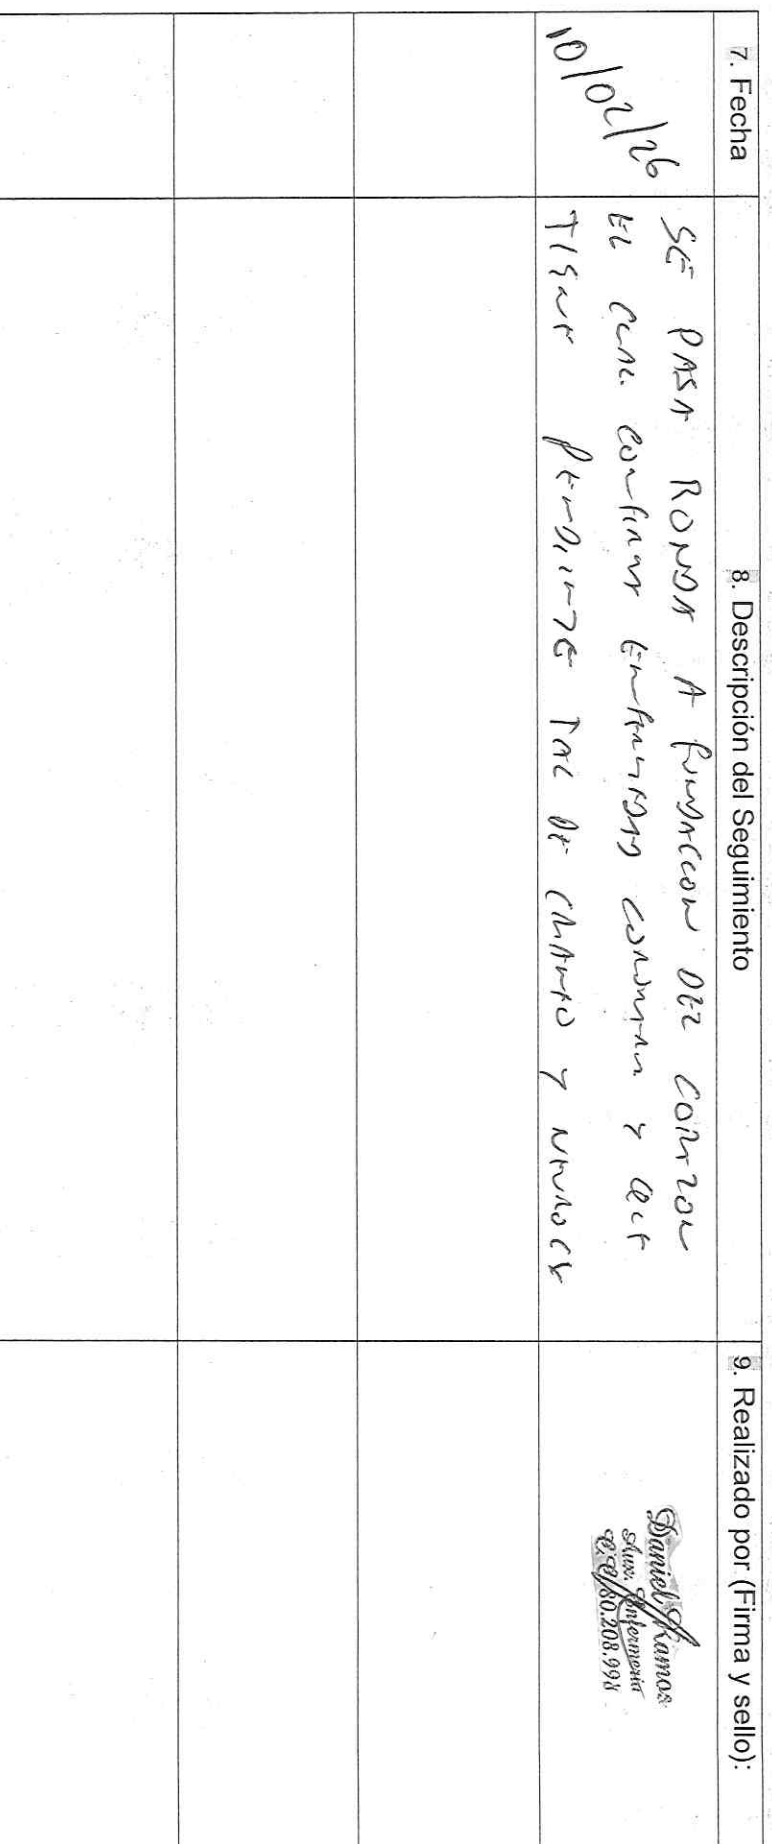 7. Fecha
8. Descripción del Seguimiento
9. Realizado por (Firma y sello):
10/02/26
SE PASA RONDA A FUNDACCON DEL CORAZON
EL CUAL CONFIRMA ENFERMEDAD CORONARIA Y QUE
TIENE PENDIENTE TAC DE CRANEO Y NEUROCX
Daniel Ramos
Aux. Enfermería
C.C. 80.208.998